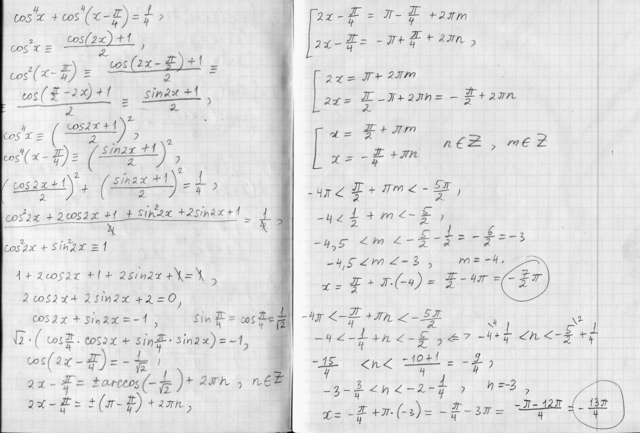 cos⁴x + cos⁴(x − π/4) = 1/4,
cos²x ≡ (cos(2x)+1)/2,
cos²(x − π/4) ≡ (cos(2x − π/2)+1)/2 ≡
≡ (cos(π/2 − 2x)+1)/2 ≡ (sin2x+1)/2,
cos⁴x ≡ ((cos2x+1)/2)²
cos⁴(x − π/4) ≡ ((sin2x+1)/2)²,
((cos2x+1)/2)² + ((sin2x+1)/2)² = 1/4,
(cos²2x + 2cos2x + 1 + sin²2x + 2sin2x + 1)/4 = 1/4,
cos²2x + sin²2x ≡ 1
1 + 2cos2x + 1 + 2sin2x + 1 = 1,
2cos2x + 2sin2x + 2 = 0,
cos2x + sin2x = −1, sin π/4 = cos π/4 = 1/√2
√2·(cos π/4·cos2x + sin π/4·sin2x) = −1,
cos(2x − π/4) = −1/√2,
2x − π/4 = ±arccos(−1/√2) + 2πn, n∈Z
2x − π/4 = ±(π − π/4) + 2πn,
[2x − π/4 = π − π/4 + 2πm
2x − π/4 = −π + π/4 + 2πn,
[2x = π + 2πm
2x = π/2 − π + 2πn = −π/2 + 2πn
[x = π/2 + πm
x = −π/4 + πn n∈Z, m∈Z
−4π < π/2 + πm < −5π/2,
−4 < 1/2 + m < −5/2,
−4,5 < m < −5/2 − 1/2 = −6/2 = −3
−4,5 < m < −3, m = −4.
x = π/2 + π·(−4) = π/2 − 4π = −7/2 π
−4π < −π/4 + πn < −5π/2
−4 < −1/4 + n < −5/2, ⇔ −4\4 + 1/4 < n < −5/2\2 + 1/4
−15/4 < n < (−10+1)/4 = −9/4,
−3 − 3/4 < n < −2 − 1/4, n = −3,
x = −π/4 + π·(−3) = −π/4 − 3π = (−π−12π)/4 = −13π/4